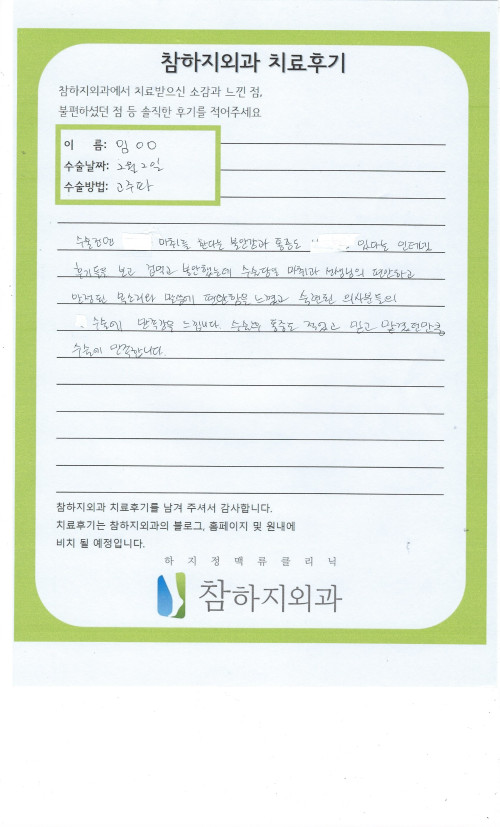 참하지외과 치료후기
참하지외과에서 치료받으신 소감과 느낀 점,
불편하셨던 점 등 솔직한 후기를 적어주세요
이 름: 임OO
수술날짜: 2월 2일
수술방법: 고주파
수술전엔 마취를 한다는 불안감과 통증도 있다는 인터넷
후기들을 보고 겁먹고 불안했는데 수술당일 마취과 선생님의 편안하고
안정된 목소리와 말씀에 편안함을 느꼈고 숙련된 의사분들의
수술에 만족감을 느낍니다. 수술후 통증도 적었고 믿고 맡겼던만큼
수술에 만족합니다.
참하지외과 치료후기를 남겨 주셔서 감사합니다.
치료후기는 참하지외과의 블로그, 홈페이지 및 원내에
비치 될 예정입니다.
하지정맥류클리닉
참하지외과